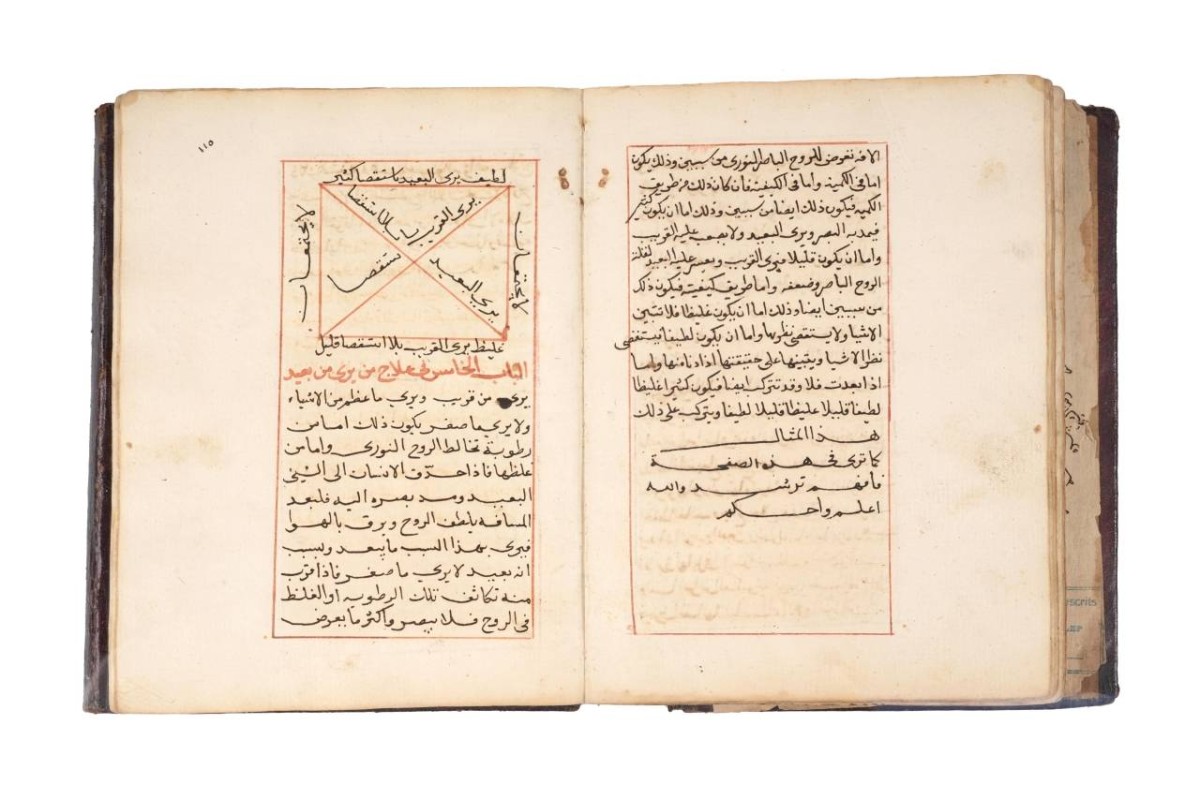 الافه تعرض للروح الباصر النورى من سببين وذلك يكون
اما فى الكمية واما فى الكيفية فان كان ذلك من طريق
الكمية فيكون ذلك ايضا من سببين وذلك اما ان يكون كثير
فيمد به البصر ويرى البعيد ولا يصعب عليه القريب
واما ان يكون قليلا فيرى القريب ويعسر عليه البعيد لقلة
الروح الباصر وضعفه واما طريق كيفيته فيكون ذلك
من سببين ايضا وذلك اما ان يكون غليظا فلا تتبين
الاشيا ولا يستقصى نظرها واما ان يكون لطيفا يستقصى
نظر الاشيا ويتبينها على حقيقتها اذا دنا منها واما
اذا بعدت فلا وقد تتركب ايضا فيكون كثيرا غليظا
لطيفا قليلا غليظا قليلا لطيفا ويتركب على ذلك
هذا المثال
كما ترى فى هذه الصفحة
فافهم ترشد والله
اعلم واحكم
١١٥
لطيف يرى البعيد باستقصا كثير
لا يجتمعان
يرى القريب بلا استقصا
يرى البعيد استقصا
لا يجتمعان
غليظ يرى القريب بلا استقصا قليل
الباب الخامس فى علاج من يرى من بعيد
يرى من قريب ويرى ما عظم من الاشياء
ولا يرى ما صغر يكون ذلك اما من
رطوبة تخالط الروح النورى واما من
غلظها فاذا حدق الانسان الى الشى
البعيد ومد بصره اليه فلبعد
المسافه يلطف الروح ويرق بالهوا
فيرى بهذا السبب ما يبعد وبسبب
انه بعيد لا يرى ما صغر فاذا قرب
منه تكاثف تلك الرطوبه او الغلظ
فى الروح فلا يبصر واكثر ما يعرض